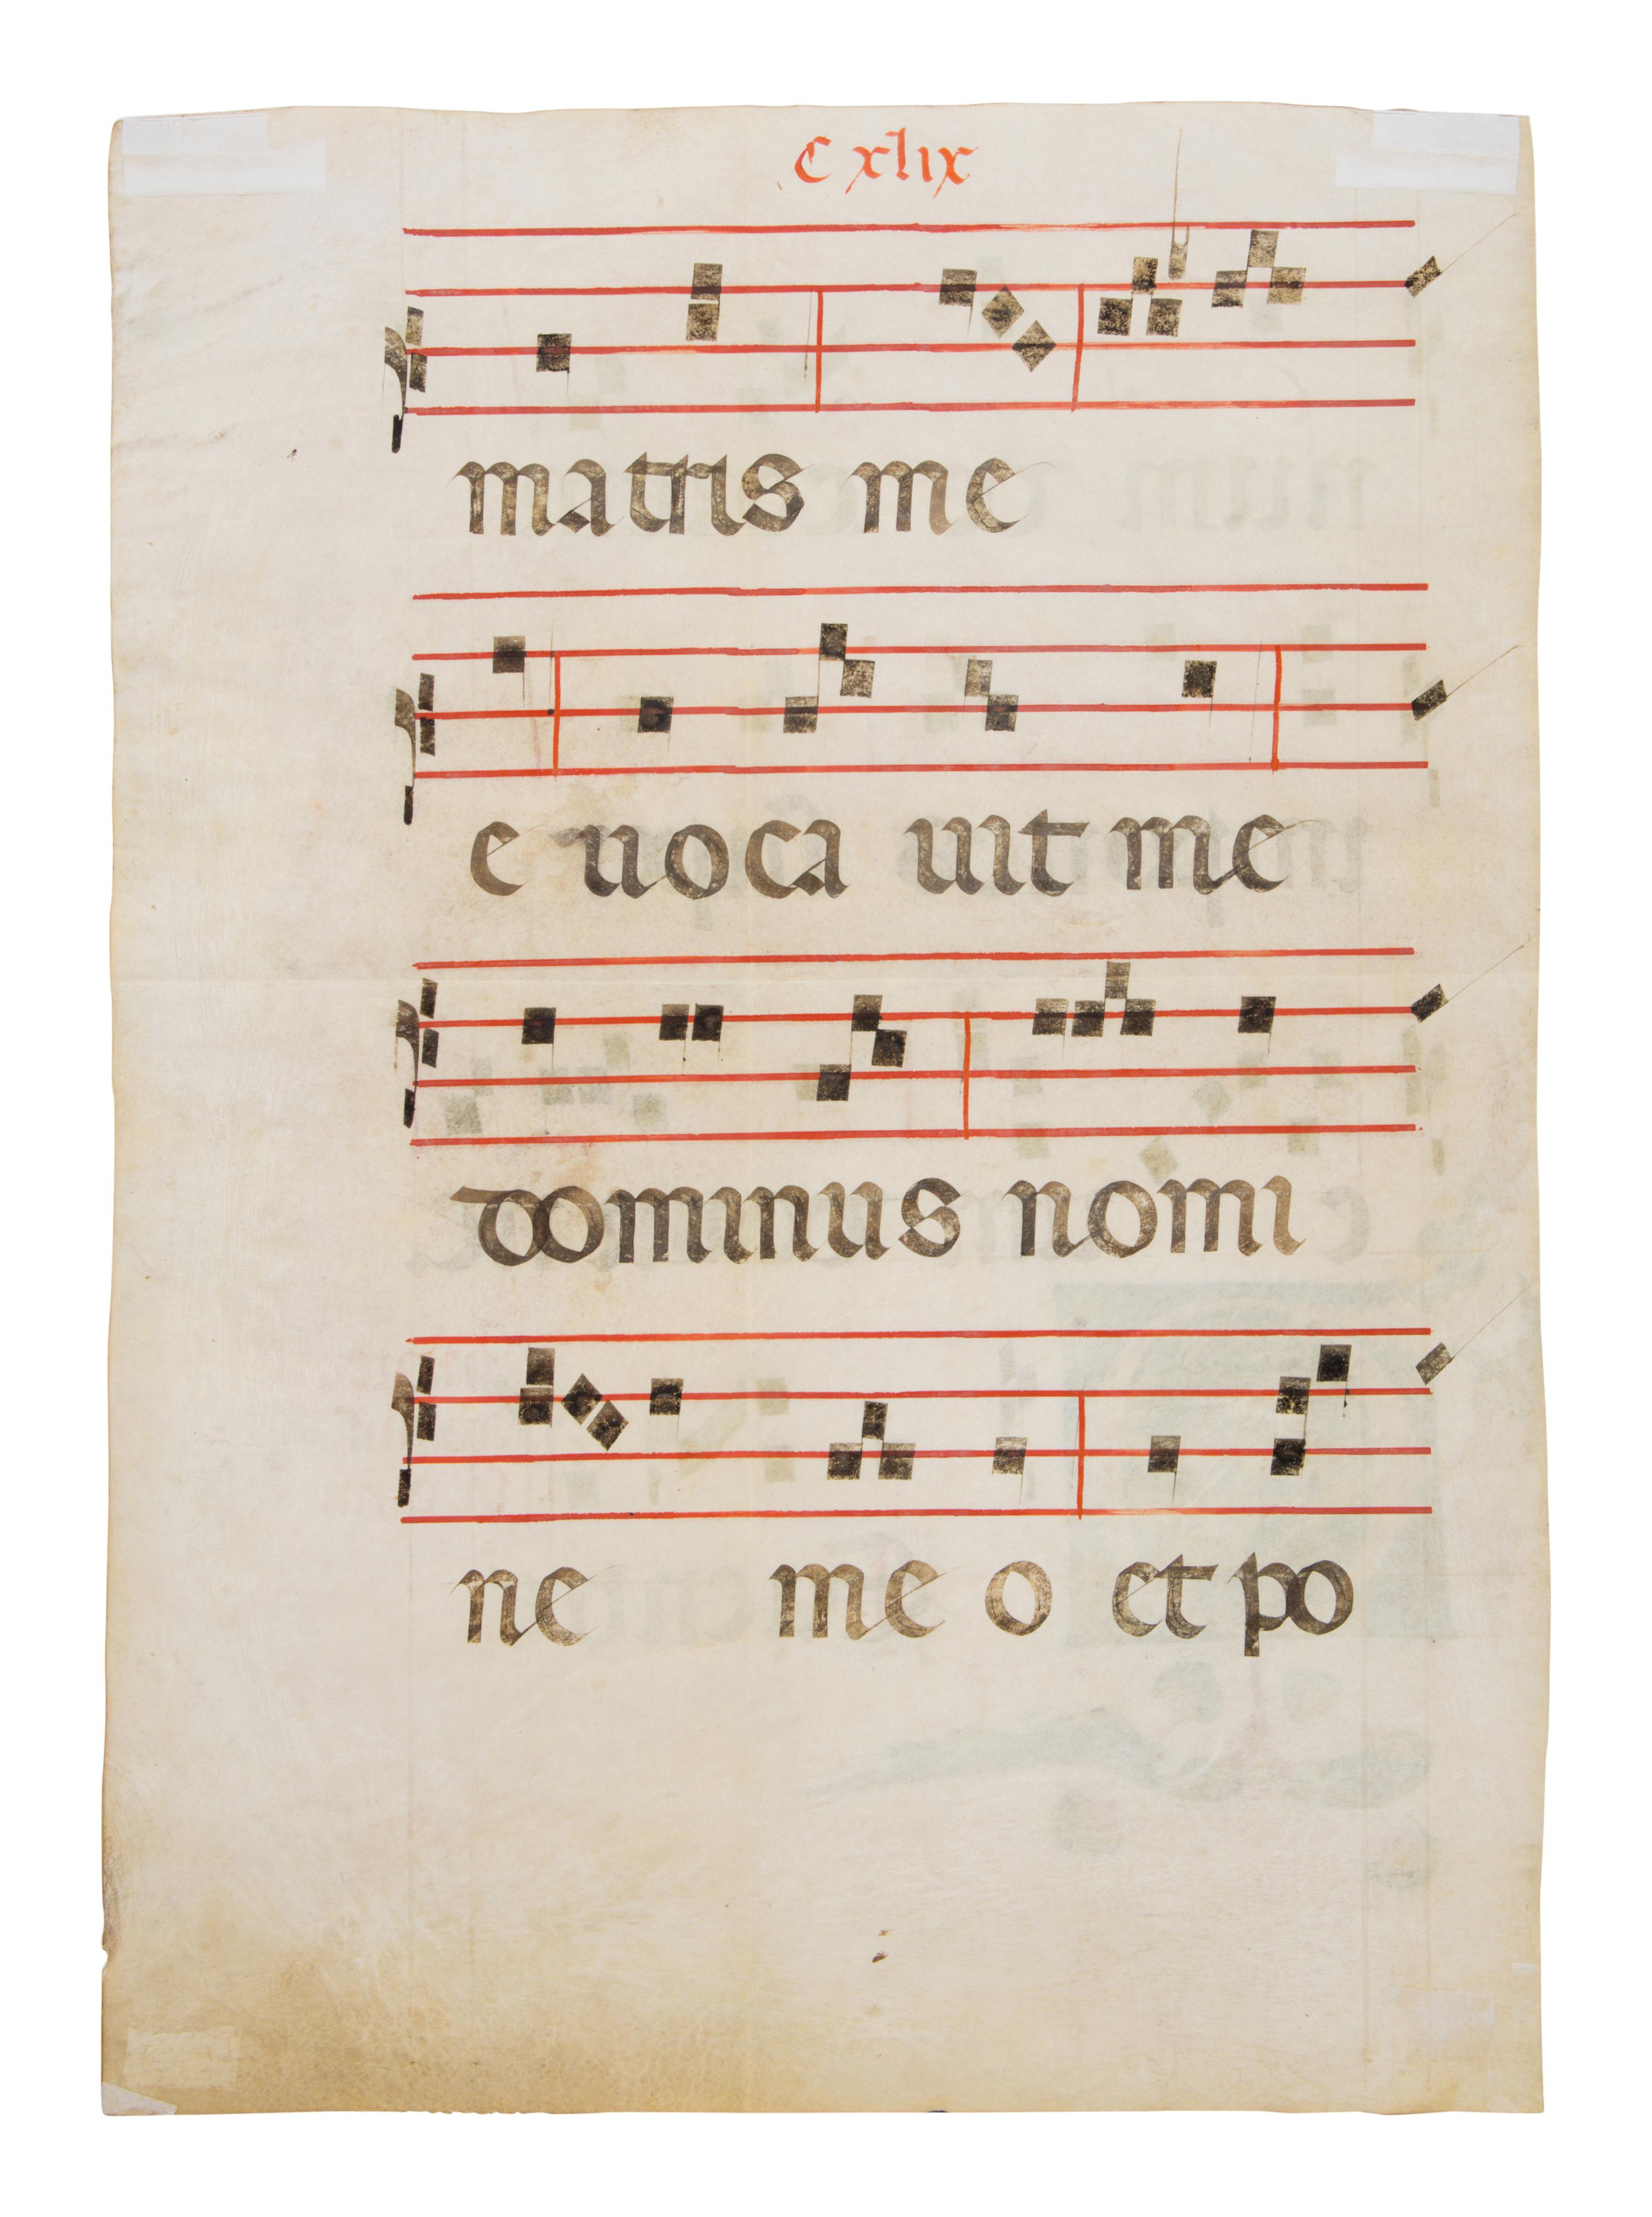 C xlix
matris me
e uoca uit me
dominus nomi
ne me o et po